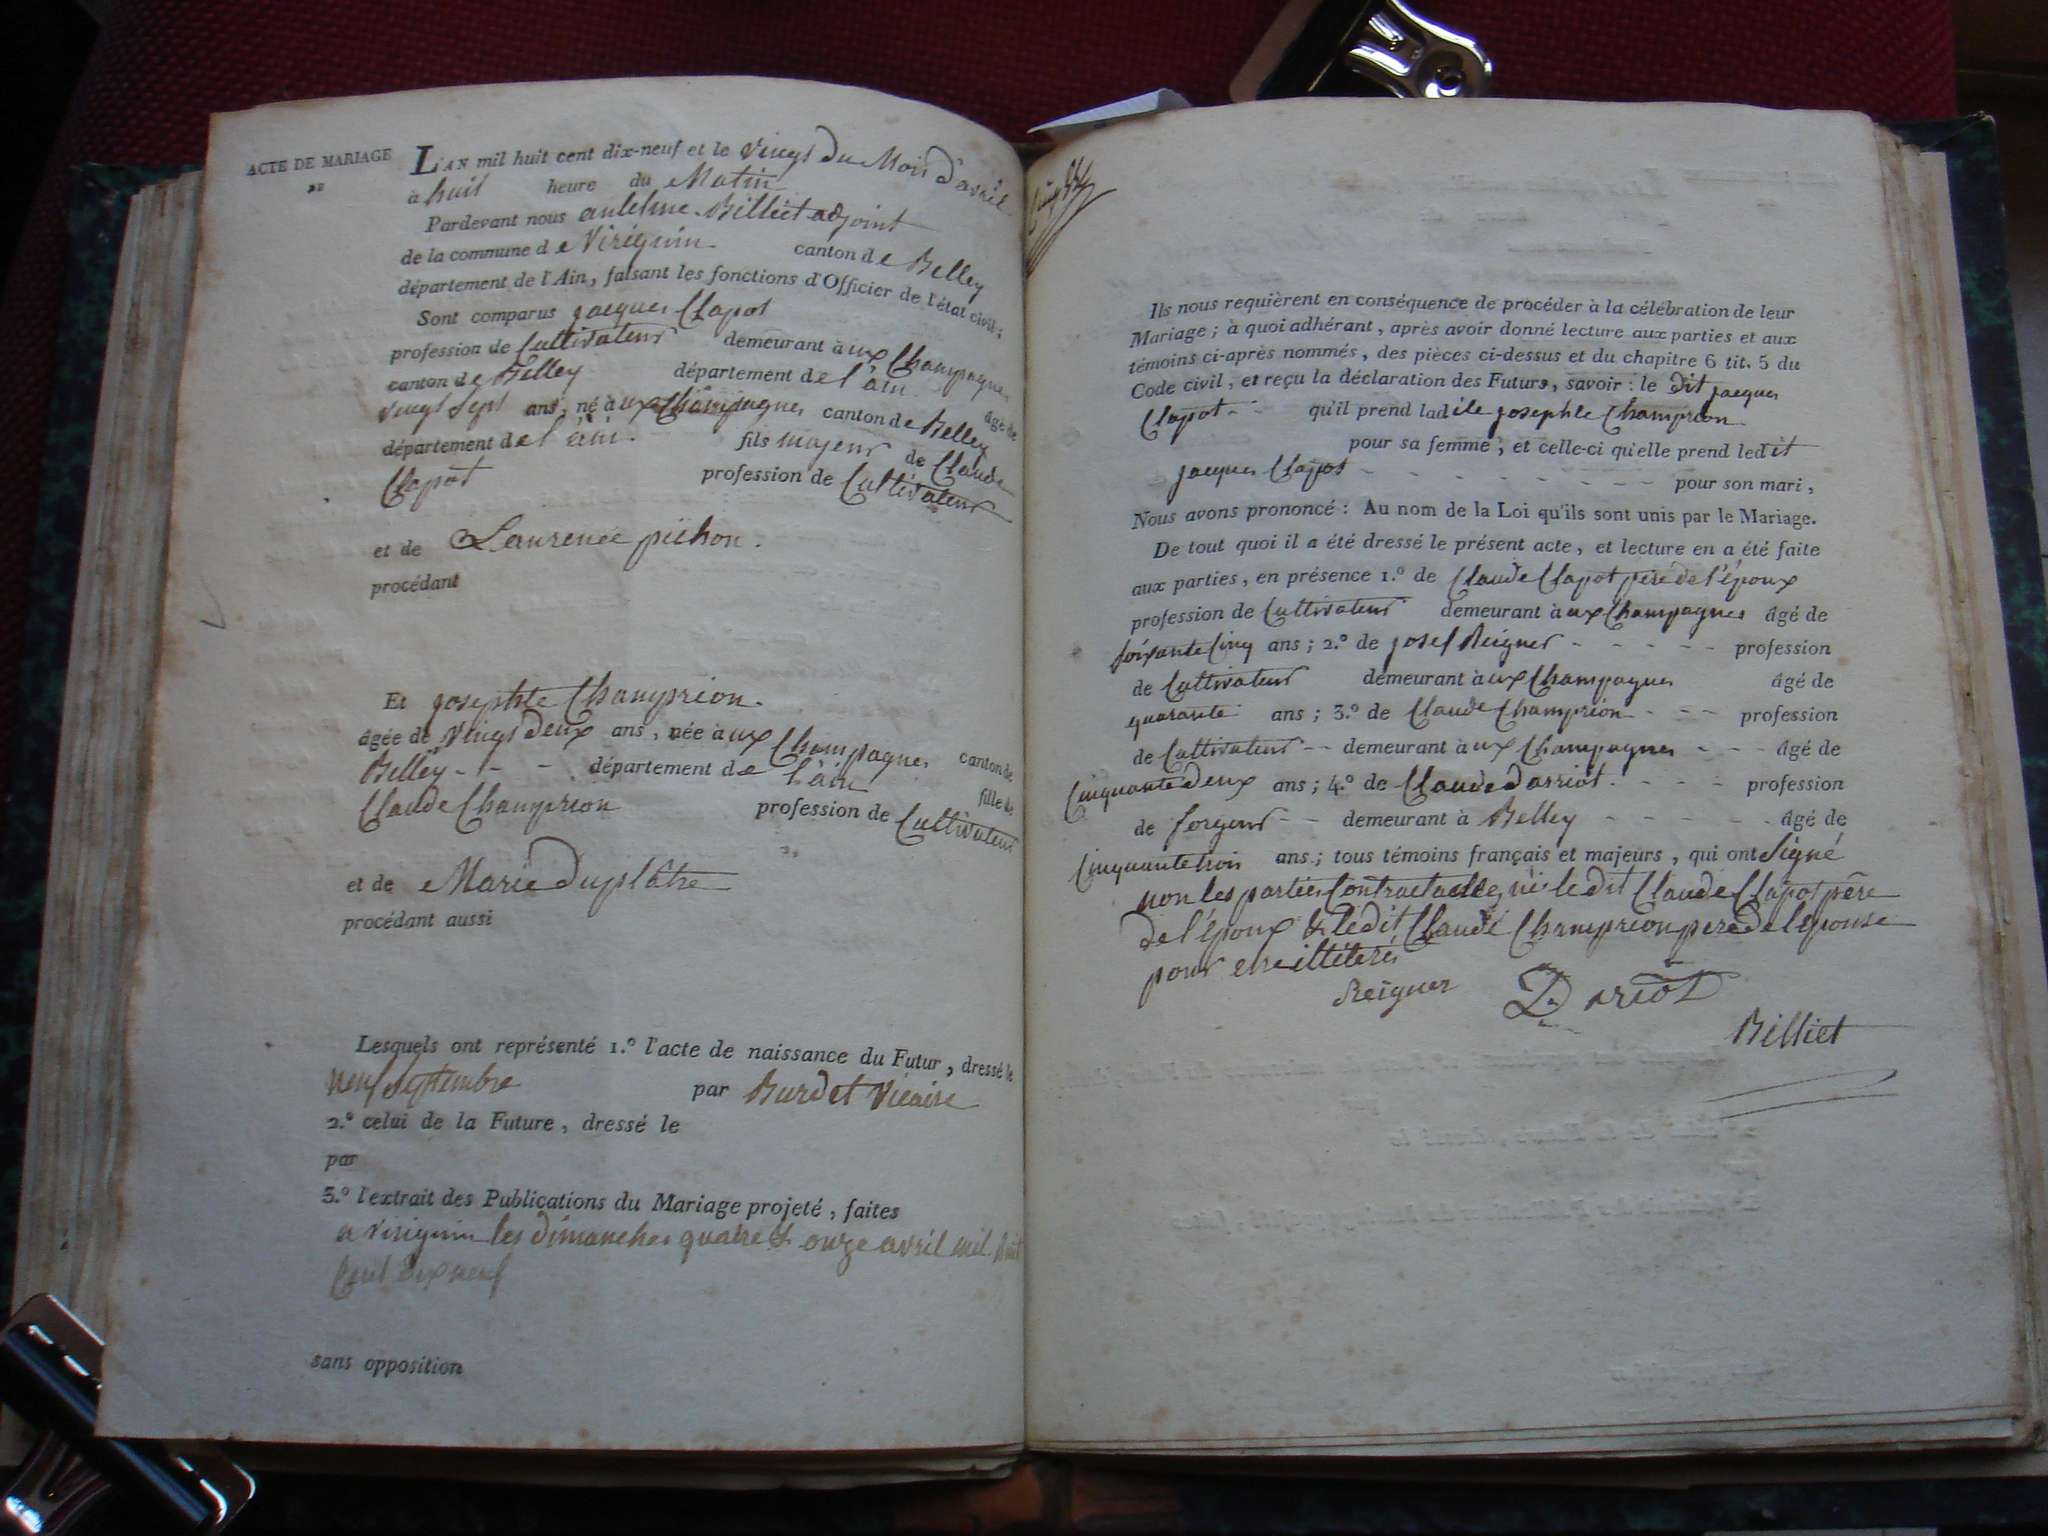 ACTE DE MARIAGE
DE
L'AN mil huit cent dix-neuf et le vingt du Mois d'avril
à huit heure du Matin
Pardevant nous antelme Billiet adjoint
de la commune de Virignin canton de Belley
département de l'Ain, faisant les fonctions d'Officier de l'état civil;
Sont comparus jacques Clapot
profession de Cultivateur demeurant à aux Champagnes
canton de Belley département de l'ain âgé de
vingt sept ans, né à aux Champagnes canton de Belley
département de l'ain fils majeur de Claude
Clapot profession de Cultivateur
et de Laurence pichon.
procédant
Et josephte Champrion.
âgée de vingt deux ans, née à aux Champagnes canton de
Belley - - - département de l'ain fille de
Claude Champrion profession de Cultivateur
et de Marie Duplâtre
procédant aussi
Lesquels ont représenté 1.º l'acte de naissance du Futur, dressé le
neuf septembre par Burdet Vicaire
2.º celui de la Future, dressé le
par
3.º l'extrait des Publications du Mariage projeté, faites
a virignin les dimanches quatre & onze avril mil huit
Cent dix neuf
sans opposition
Ils nous requièrent en conséquence de procéder à la célébration de leur
Mariage; à quoi adhérant, après avoir donné lecture aux parties et aux
témoins ci-après nommés, des pièces ci-dessus et du chapitre 6 tit. 5 du
Code civil, et reçu la déclaration des Futurs, savoir: le dit jacques
Clapot - - qu'il prend ladite josephte Champrion
pour sa femme, et celle-ci qu'elle prend ledit
jacques Clapot - - - - - - - pour son mari,
Nous avons prononcé: Au nom de la Loi qu'ils sont unis par le Mariage.
De tout quoi il a été dressé le présent acte, et lecture en a été faite
aux parties, en présence 1.º de Claude Clapot père de l'époux
profession de Cultivateur demeurant à aux Champagnes âgé de
soixante Cinq ans; 2.º de josef Reigner - - - - - profession
de Cultivateur demeurant à aux Champagnes âgé de
quarante ans; 3.º de Claude Champrion - - - profession
de Cultivateur - - demeurant à aux Champagnes - - - âgé de
Cinquante deux ans; 4.º de Claude Darriot. - - - profession
de forgeur - - demeurant à Belley - - - - - - âgé de
Cinquante trois ans; tous témoins français et majeurs, qui ont Signé
non les parties Contractantes, ni le dit Claude Clapot père
de l'époux & ledit Claude Champrion pere de l'épouse
pour être illitérés
Reigner Dariot
Billiet